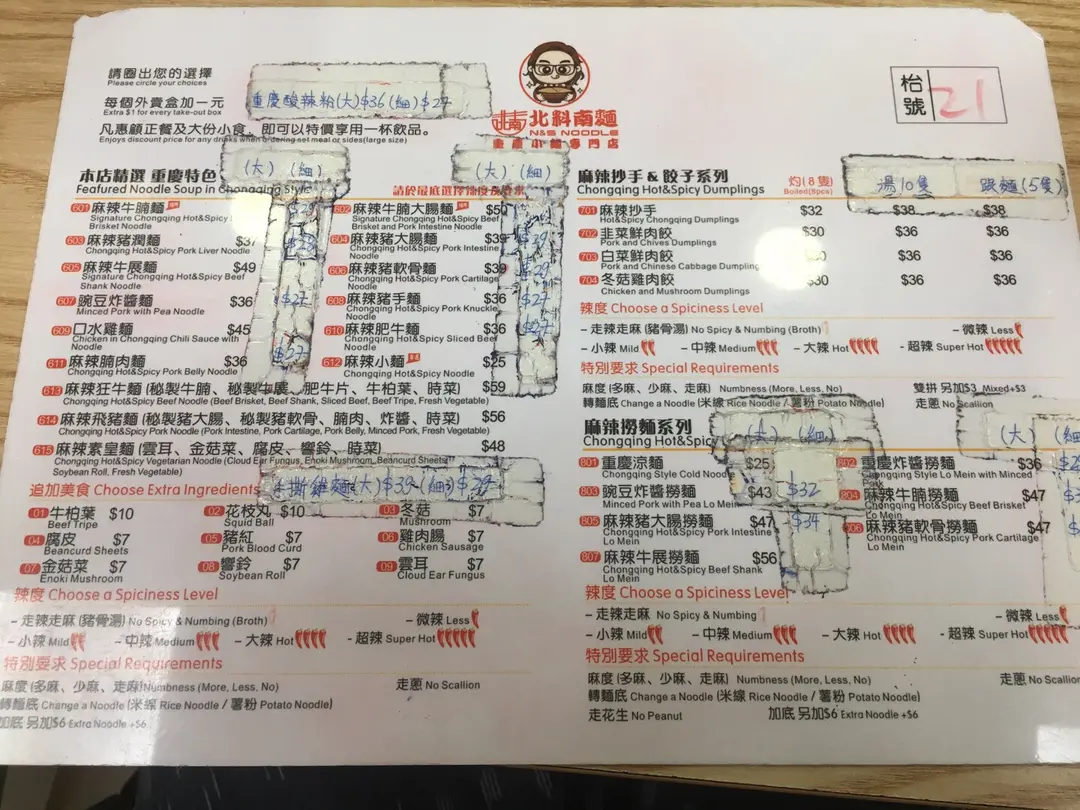 請圈出您的選擇
Please circle your choices
每個外賣盒加一元
Extra $1 for every take-out box
重慶酸辣粉(大)$36(細)$27
凡惠顧正餐及大份小食，即可以特價享用一杯飲品。
Enjoys discount price for any drinks when ordering set meal or sides(large size)
北科南麵
N&S NOODLE
重慶小麵專門店
枱號 21
本店精選 重慶特色
Featured Noodle Soup in Chongqing Style
(大) (細)
(大) (細)
請於最底選擇辣度及要求
601 麻辣牛腩麵
Signature Chongqing Hot&Spicy Beef
Brisket Noodle
602 麻辣牛腩大腸麵 $50
Signature Chongqing Hot&Spicy Beef
Brisket and Pork Intestine Noodle
603 麻辣豬潤麵 $37
Chongqing Hot&Spicy Pork Liver Noodle
604 麻辣豬大腸麵 $39
Chongqing Hot&Spicy Pork Intestine
Noodle
605 麻辣牛展麵 $49
Signature Chongqing Hot&Spicy Beef
Shank Noodle
606 麻辣豬軟骨麵 $39
Chongqing Hot&Spicy Pork Cartilage
Noodle
607 豌豆炸醬麵 $36 $27
Minced Pork with Pea Noodle
608 麻辣豬手麵 $36 $27
Chongqing Hot&Spicy Pork Knuckle
Noodle
609 口水雞麵 $45
Chicken in Chongqing Chili Sauce with
Noodle
610 麻辣肥牛麵 $36 $27
Chongqing Hot&Spicy Sliced Beef
Noodle
611 麻辣腩肉麵 $36 $27
Chongqing Hot&Spicy Pork Belly Noodle
612 麻辣小麵 $25
Chongqing Hot&Spicy Noodle
613 麻辣狂牛麵 (秘製牛腩、秘製牛展、肥牛片、牛柏葉、時菜) $59
Chongqing Hot&Spicy Beef Noodle (Beef Brisket, Beef Shank, Sliced Beef, Beef Tripe, Fresh Vegetable)
614 麻辣飛豬麵 (秘製豬大腸、秘製豬軟骨、腩肉、炸醬、時菜) $56
Chongqing Hot&Spicy Pork Noodle (Pork Intestine, Pork Cartilage, Pork Belly, Minced Pork, Fresh Vegetable)
615 麻辣素皇麵 (雲耳、金菇菜、腐皮、響鈴、時菜) $48
Chongqing Hot&Spicy Vegetarian Noodle (Cloud Ear Fungus, Enoki Mushroom, Beancurd Sheets,
Soybean Roll, Fresh Vegetable)
手撕雞麵(大)$39(細)$29
追加美食 Choose Extra Ingredients
01 牛柏葉 $10
Beef Tripe
02 花枝丸 $10
Squid Ball
03 冬菇 $7
Mushroom
04 腐皮 $7
Beancurd Sheets
05 豬紅 $7
Pork Blood Curd
06 雞肉腸 $7
Chicken Sausage
07 金菇菜 $7
Enoki Mushroom
08 響鈴 $7
Soybean Roll
09 雲耳 $7
Cloud Ear Fungus
辣度 Choose a Spiciness Level
- 走辣走麻 (豬骨湯) No Spicy & Numbing (Broth)
- 微辣 Less
- 小辣 Mild
- 中辣 Medium
- 大辣 Hot
- 超辣 Super Hot
特別要求 Special Requirements
麻度 (多麻、少麻、走麻) Numbness (More, Less, No)
走蔥 No Scallion
轉麵底 Change a Noodle (米線 Rice Noodle / 薯粉 Potato Noodle)
加底 另加$6 Extra Noodle +$6
麻辣抄手 & 餃子系列
Chongqing Hot&Spicy Dumplings
灼(8隻)
Boiled(8pcs)
湯10隻
跟麵(5隻)
701 麻辣抄手 $32 $38 $38
Hot&Spicy Chongqing Dumplings
702 韭菜鮮肉餃 $30 $36 $36
Pork and Chives Dumplings
703 白菜鮮肉餃 $36 $36
Pork and Chinese Cabbage Dumpling
704 冬菇雞肉餃 $30 $36 $36
Chicken and Mushroom Dumplings
辣度 Choose a Spiciness Level
- 走辣走麻 (豬骨湯) No Spicy & Numbing (Broth)
- 微辣 Less
- 小辣 Mild
- 中辣 Medium
- 大辣 Hot
- 超辣 Super Hot
特別要求 Special Requirements
麻度 (多麻、少麻、走麻) Numbness (More, Less, No)
雙拼 另加$3 Mixed+$3
轉麵底 Change a Noodle (米線 Rice Noodle / 薯粉 Potato Noodle)
走蔥 No Scallion
麻辣撈麵系列
Chongqing Hot&Spicy
(大) (細)
(大) (細
801 重慶涼麵 $25
Chongqing Style Cold Noodle
802 重慶炸醬撈麵 $36
Chongqing Style Lo Mein with Minced
Pork
803 豌豆炸醬撈麵 $43 $32
Minced Pork with Pea Lo Mein
804 麻辣牛腩撈麵 $47
Chongqing Hot&Spicy Beef Brisket
Lo Mein
805 麻辣豬大腸撈麵 $47 $34
Chongqing Hot&Spicy Pork Intestine
Lo Mein
806 麻辣豬軟骨撈麵 $47
Chongqing Hot&Spicy Pork Cartilage
Lo Mein
807 麻辣牛展撈麵 $56
Chongqing Hot&Spicy Beef Shank
Lo Mein
辣度 Choose a Spiciness Level
- 走辣走麻 No Spicy & Numbing
- 微辣 Less
- 小辣 Mild
- 中辣 Medium
- 大辣 Hot
- 超辣 Super Hot
特別要求 Special Requirements
麻度 (多麻、少麻、走麻) Numbness (More, Less, No)
走蔥 No Scallion
轉麵底 Change a Noodle (米線 Rice Noodle / 薯粉 Potato Noodle)
走花生 No Peanut
加底 另加$6 Extra Noodle +$6